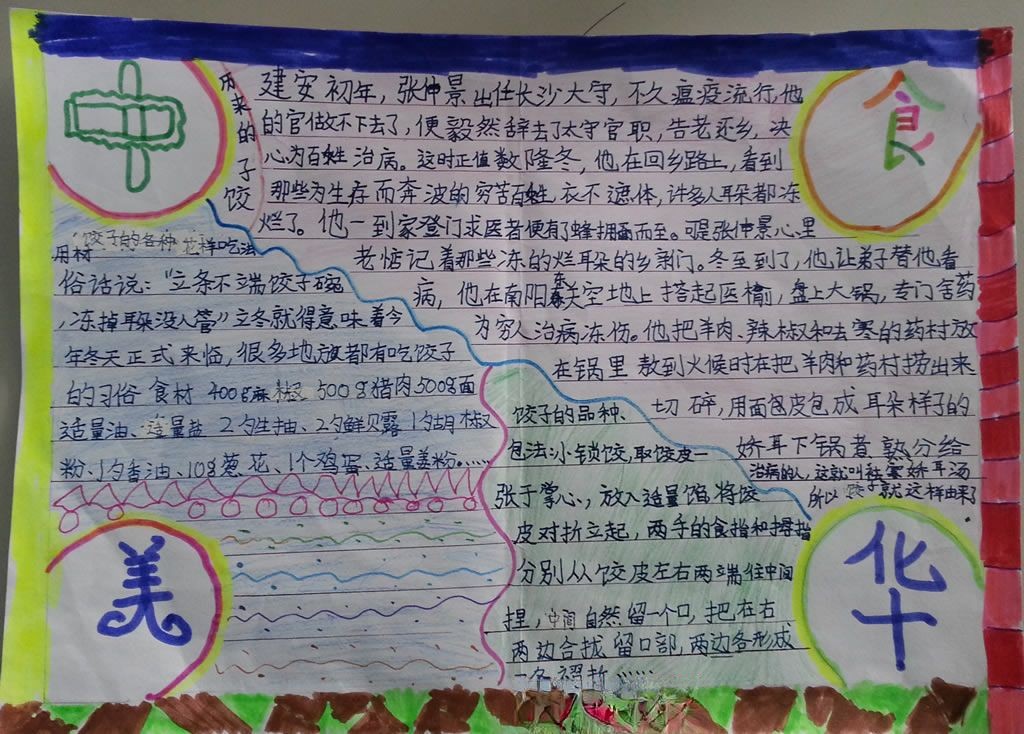 中
食
美
华
历来的子饺
建安初年，张仲景出任长沙大守，不久瘟疫流行，他
的官做不下去了，便毅然辞去了太守官职，告老还乡，决
心为百姓治病。这时正值数隆冬，他在回乡路上，看到
那些为生存而奔波的穷苦百姓衣不遮体，许多人耳朵都冻
烂了。他一到家登门求医者便有了蜂拥而至。可是张仲景心里
老惦记着那些冻的烂耳朵的乡亲门。冬至到了，他让弟子替他看
病，他在南阳东关空地上搭起医棚，盘上大锅，专门舍药
为穷人治病冻伤。他把羊肉、辣椒和去寒的药村放
在锅里敖到火候时在把羊肉和药村捞出来
切碎，用面包皮包成耳朵样子的
娇耳下锅煮熟分给
治病的人，这就叫祛寒娇耳汤
所以饺子就这样由来了.
饺子的各种花样吃法
用材
俗话说："立条不端饺子碗
，冻掉耳朵没人管"立冬就得意味着今
年冬天正式来临，很多地方都有吃饺子
的习俗食材 400g麻椒 500g猪肉500g面
适量油、适量盐 2勺生抽、2勺鲜贝露 1勺胡椒
粉、1勺香油、10g葱花、1个鸡蛋、适量姜粉……
饺子的品种、
包法:小锁饺，取饺皮一
张于掌心，放入适量馅将饺
皮对折立起，两手的食指和拇指
分别从从饺皮左右两端往中间
捏，中间自然留一个口，把在右
两边合拢留口部，两边各形成
一个褶折……